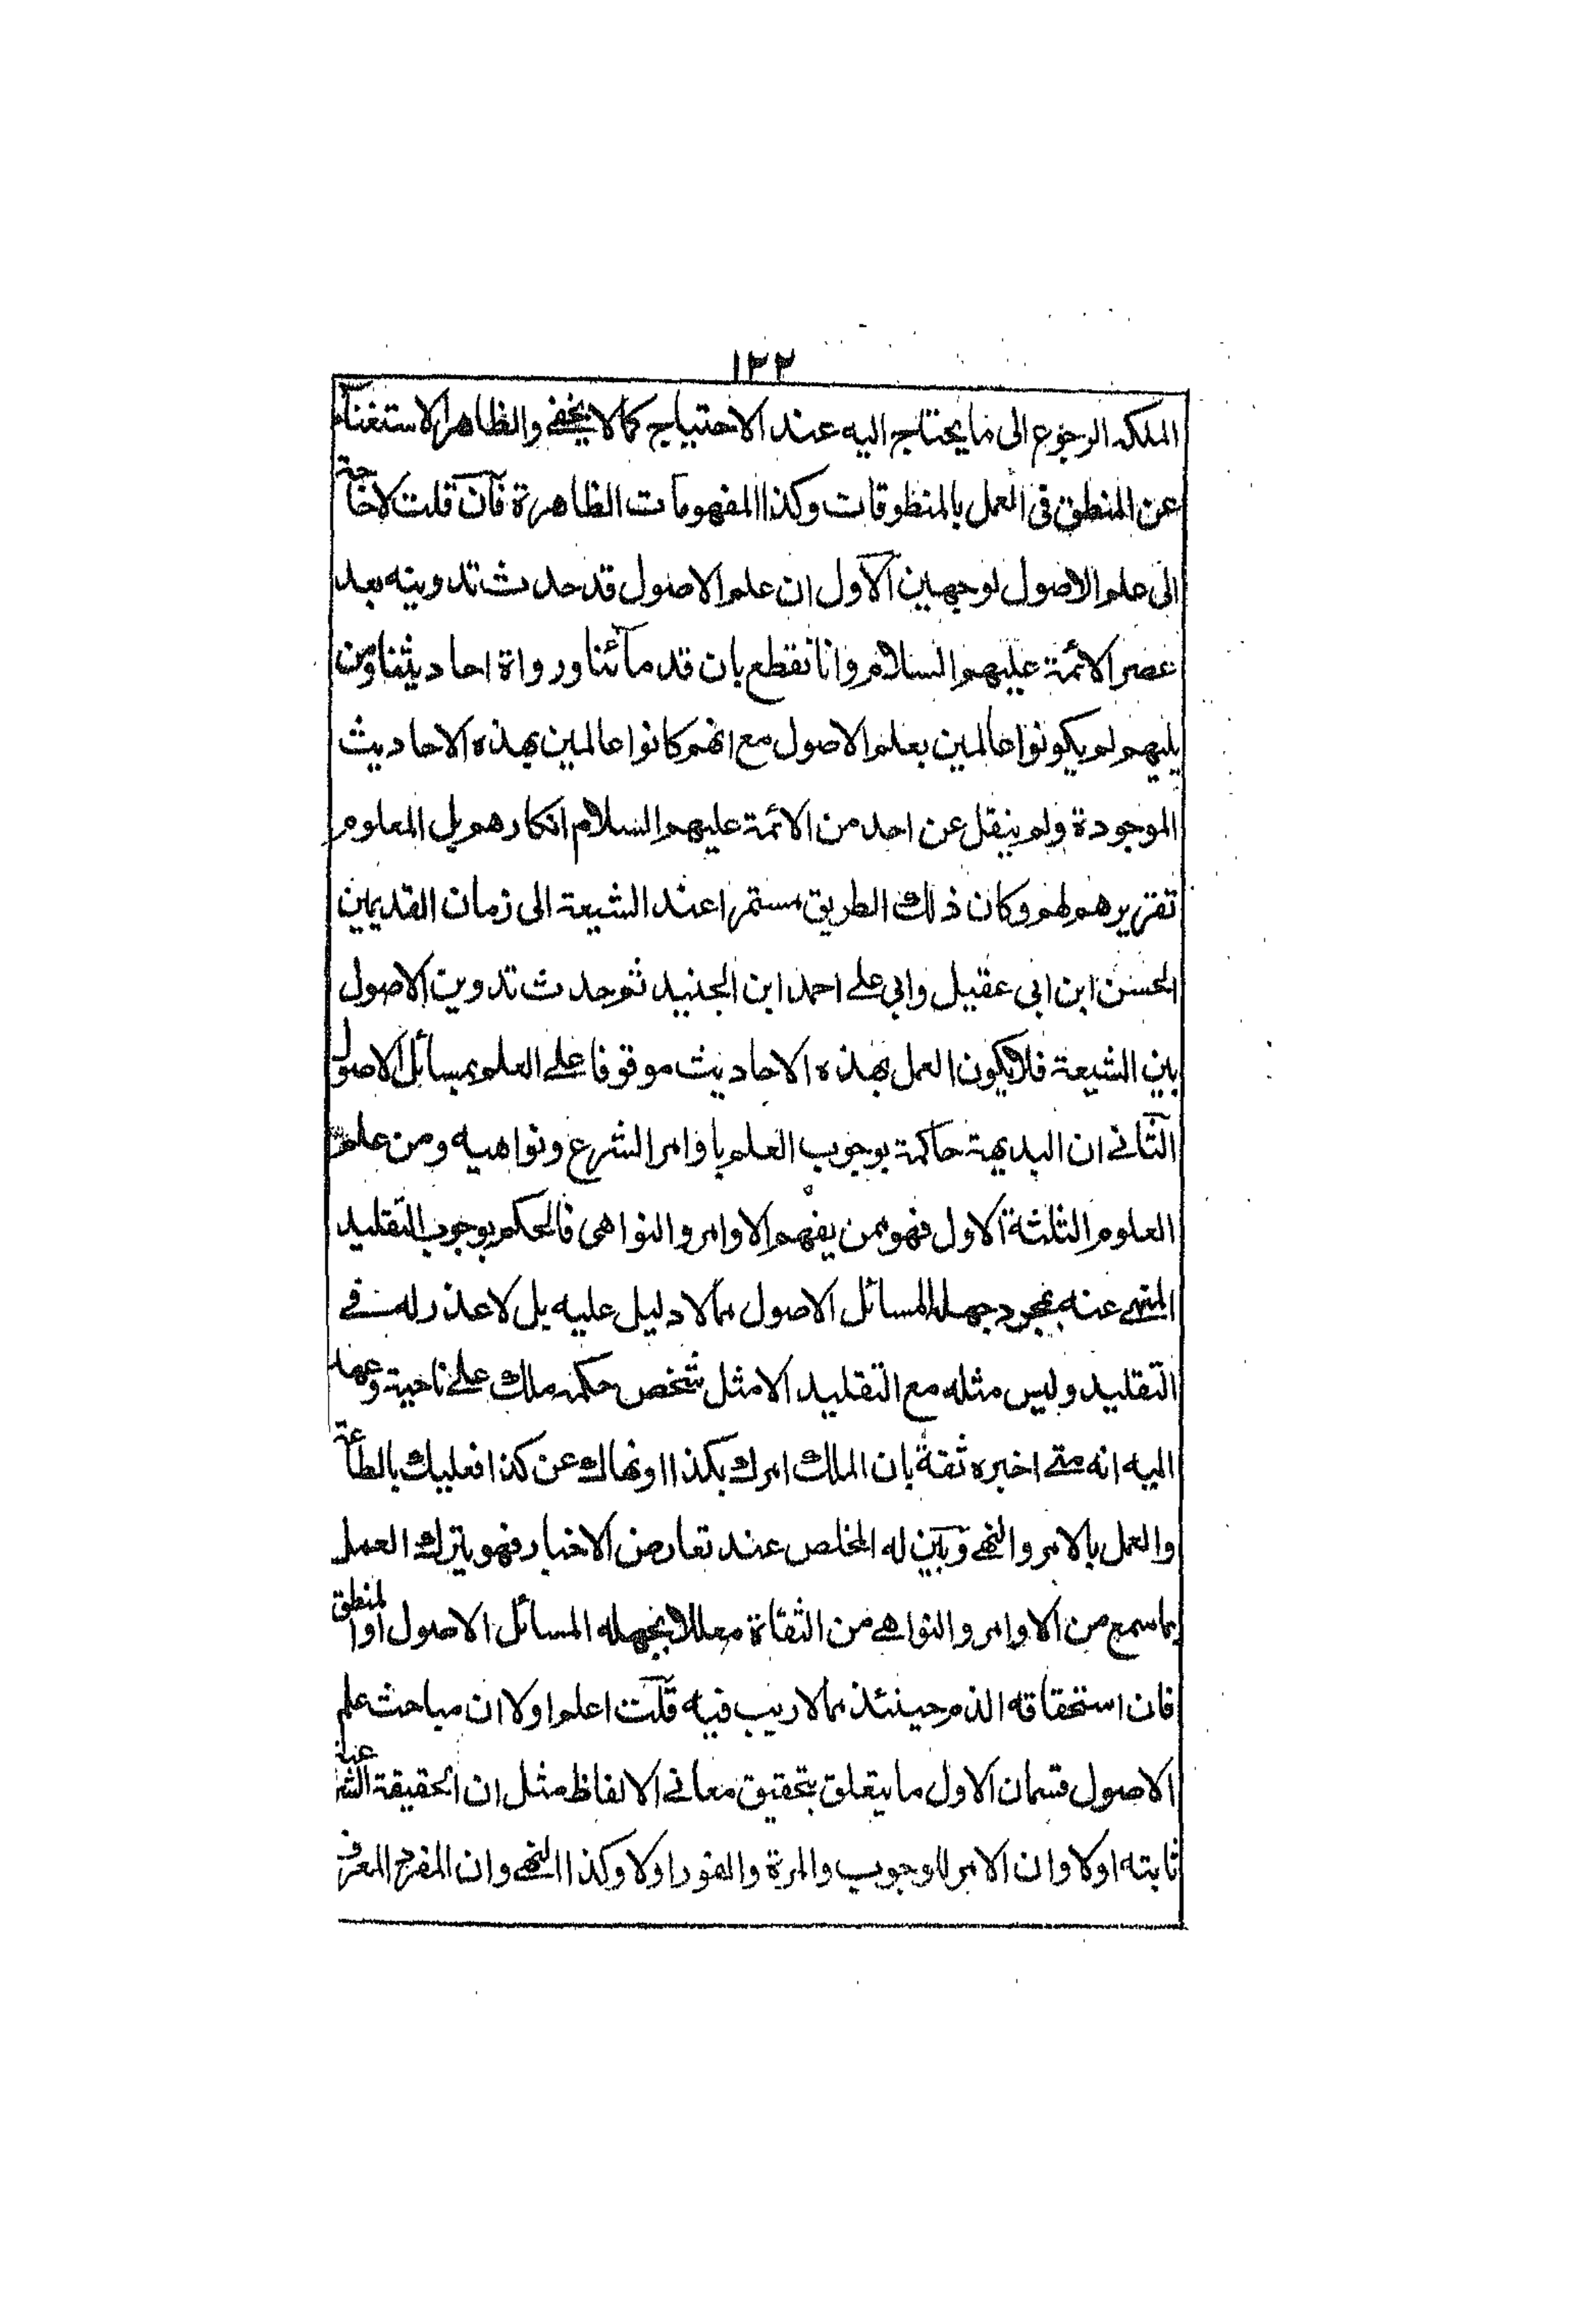 ١٢٢
الملكه الرجوع الى ما يحتاج اليه عند الاحتياج كما لا يخفے والظاهر الاستغناء
عن المنطق فى العمل بالمنطوقات وكذا المفهومات الظاهرة فان قلت لا حاجة
الى علم الاصول لوجهين الاول ان علم الاصول قد حدث تدوينه بعد
عصر الائمة عليهم السلام وانا نقطع بان قدمائنا ورواة احاديثنا ومن
يليهم لم يكونوا عالمين بعلم الاصول مع انهم كانوا عالمين بهذه الاحاديث
الموجودة ولم ينقل عن احد من الائمة عليهم السلام انكارهم بل المعلوم
تقريرهم لهم وكان ذلك الطريق مستمرا عند الشيعة الى زمان القديمين
الحسن ابن ابى عقيل وابي علے احمد ابن الجنيد ثم حدث تدوين الاصول
بين الشيعة فلا يكون العمل بهذه الاحاديث موقوفا علے العلم بمسائل الاصول
الثانے ان البديهة حاكمة بوجوب العلم باوامر الشرع ونواهيه ومن علم
العلوم الثلثة الاول فهو ممن يفهم الاوامر والنواهى فالحكم بوجوب التقليد
المنهے عنه بمجرد جهله المسائل الاصول مما لا دليل عليه بل لا عذر له فے
التقليد وليس مثله مع التقليد الا مثل شخص حكمه ملك علے ناحية وعهد
اليه انه متے اخبره ثقة بان الملك امرك بكذا او نهاك عن كذا فعليك بالطاعة
والعمل بالامر والنهے وبين له المخلص عند تعارض الاخبار فهو يترك العمل
بما سمع من الاوامر والنواهے من الثقاة معللا بجهله المسائل الاصول او المنطق
فان استحقاقه الذم حينئذ مما لا ريب فيه قلت اعلم اولا ان مباحث علم
الاصول قسمان الاول ما يتعلق بتحقيق معانے الالفاظ مثل ان الحقيقة الشرعية
ثابته اولا وان الامر للوجوب والمرة والفور اولا وكذا النهے وان المفرد المعرف